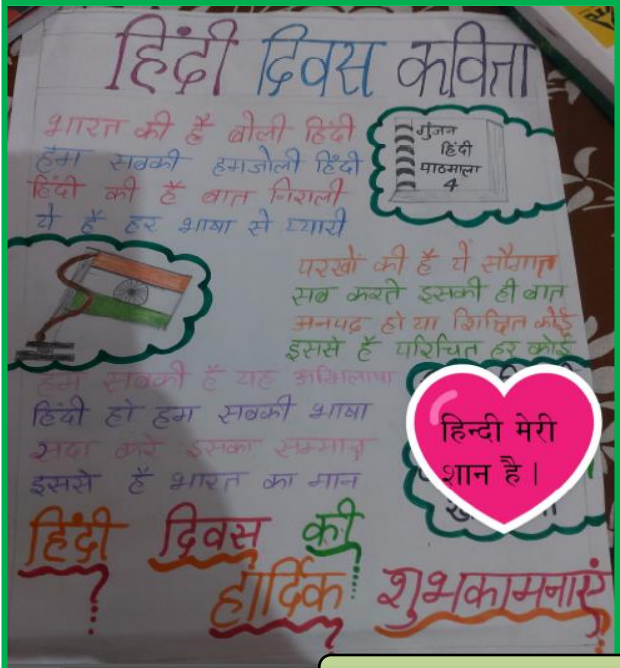 हिंदी दिवस कविता
भारत की है बोली हिंदी
हम सबकी हमजोली हिंदी
हिंदी की है बात निराली
ये है हर भाषा से प्यारी
गुंजन
हिंदी
पाठमाला
4
परखों की है ये सौगात
सब करते इसकी ही बात
अनपढ़ हो या शिक्षित कोई
इससे है परिचित हर कोई
हम सबकी है यह अभिलाषा
हिंदी हो हम सबकी भाषा
सदा करे इसका सम्मान
इससे है भारत का मान
हिन्दी मेरी
शान है।
हिंदी दिवस की
हार्दिक शुभकामनाएं